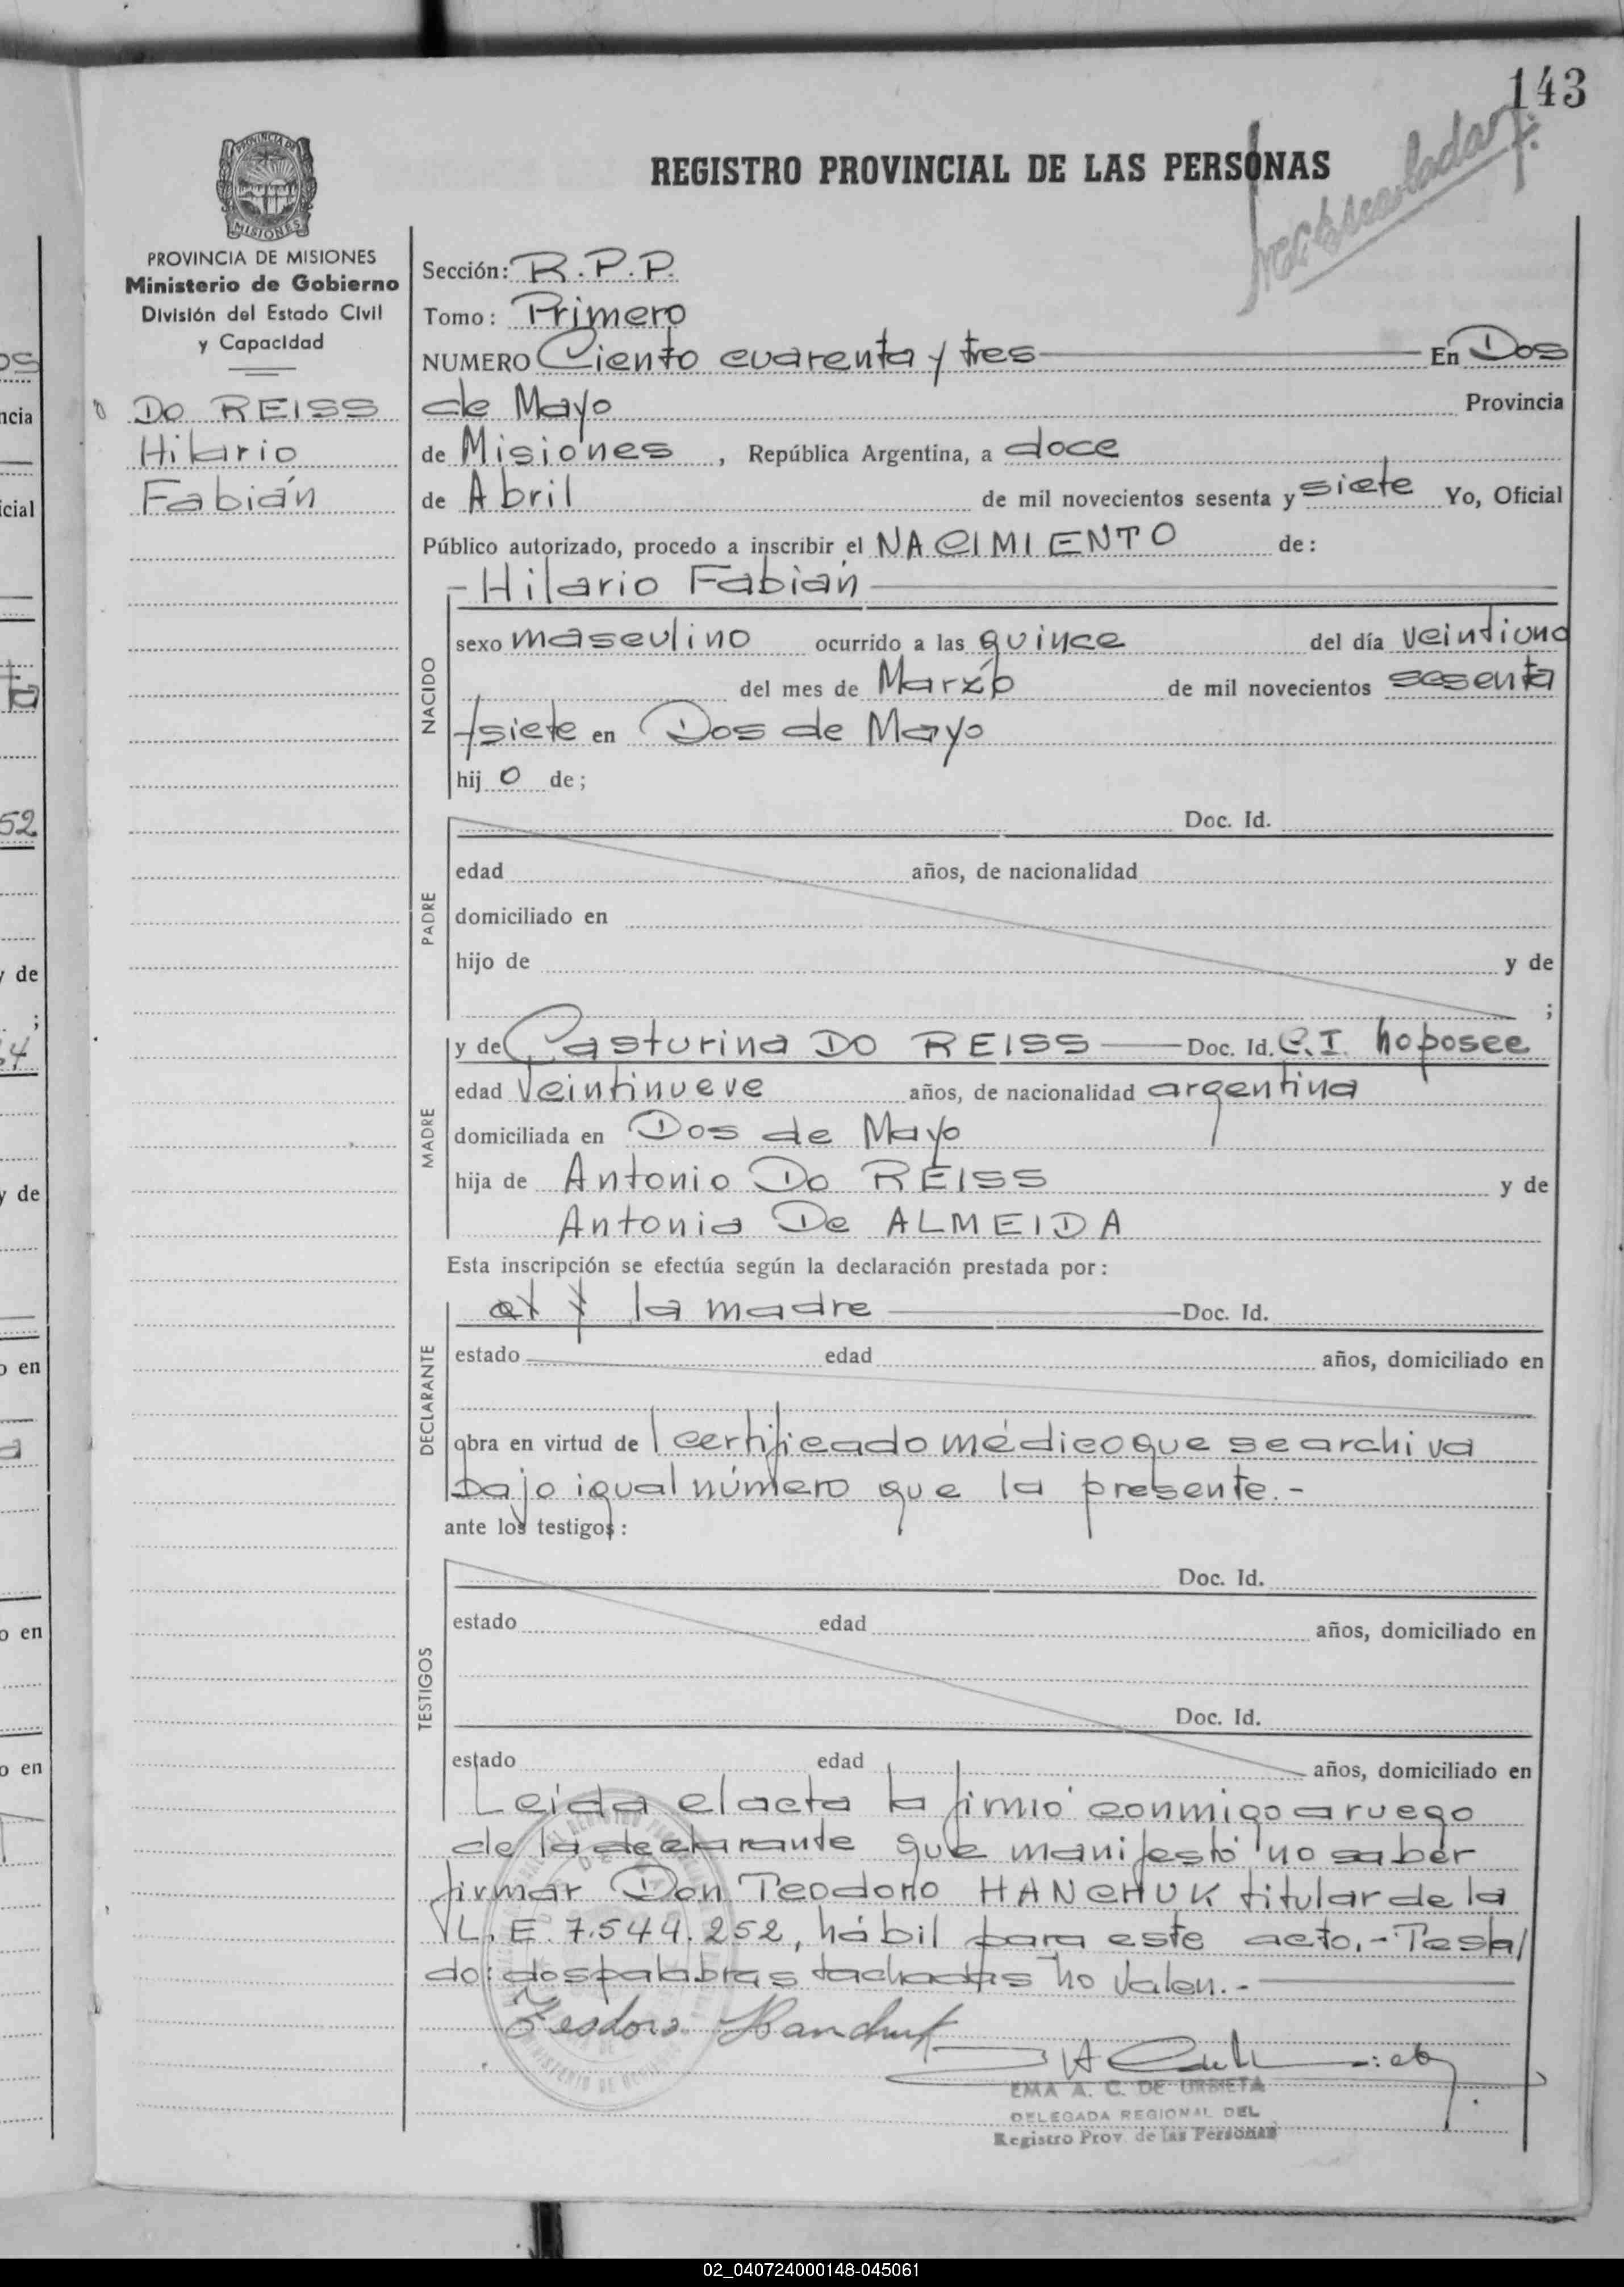 143
REGISTRO PROVINCIAL DE LAS PERSONAS
PROVINCIA DE
MISIONES
PROVINCIA DE MISIONES
Ministerio de Gobierno
División del Estado Civil
y Capacidad
Do REISS
Hilario
Fabián
Sección: R.P.P.
Tomo: Primero
NUMERO Ciento cuarenta y tres En Dos
de Mayo Provincia
de Misiones, República Argentina, a doce
de Abril de mil novecientos sesenta y siete Yo, Oficial
Público autorizado, procedo a inscribir el NACIMIENTO de:
- Hilario Fabián
NACIDO
sexo masculino ocurrido a las quince del día veintiuno
del mes de Marzo de mil novecientos sesenta
/siete en Dos de Mayo
hij o de;
PADRE
Doc. Id.
edad años, de nacionalidad
domiciliado en
hijo de y de
;
MADRE
y de Casturina DO REISS Doc. Id. C.I. no posee
edad veintinueve años, de nacionalidad argentina
domiciliada en Dos de Mayo
hija de Antonio Do REISS y de
Antonia De ALMEIDA
Esta inscripción se efectúa según la declaración prestada por:
DECLARANTE
el y la madre Doc. Id.
estado edad años, domiciliado en
obra en virtud de l certificado médico que se archiva
bajo igual número que la presente.-
ante los testigos:
TESTIGOS
Doc. Id.
estado edad años, domiciliado en
Doc. Id.
estado edad años, domiciliado en
Leida el acta la firmó conmigo a ruego
de la declarante que manifestó no saber
firmar Don Teodoro HANCHUK titular de la
L.E. 7.544.252, hábil para este acto.- Testa/
do: dos palabras tachadas no valen.-
Teodoro Hanchuk
EMA A. C. DE URBIETA
DELEGADA REGIONAL DEL
Registro Prov. de las Personas
os
ncia
icial
ta
52
y de
;
64
y de
o en
a
o en
o en
02_040724000148-045061